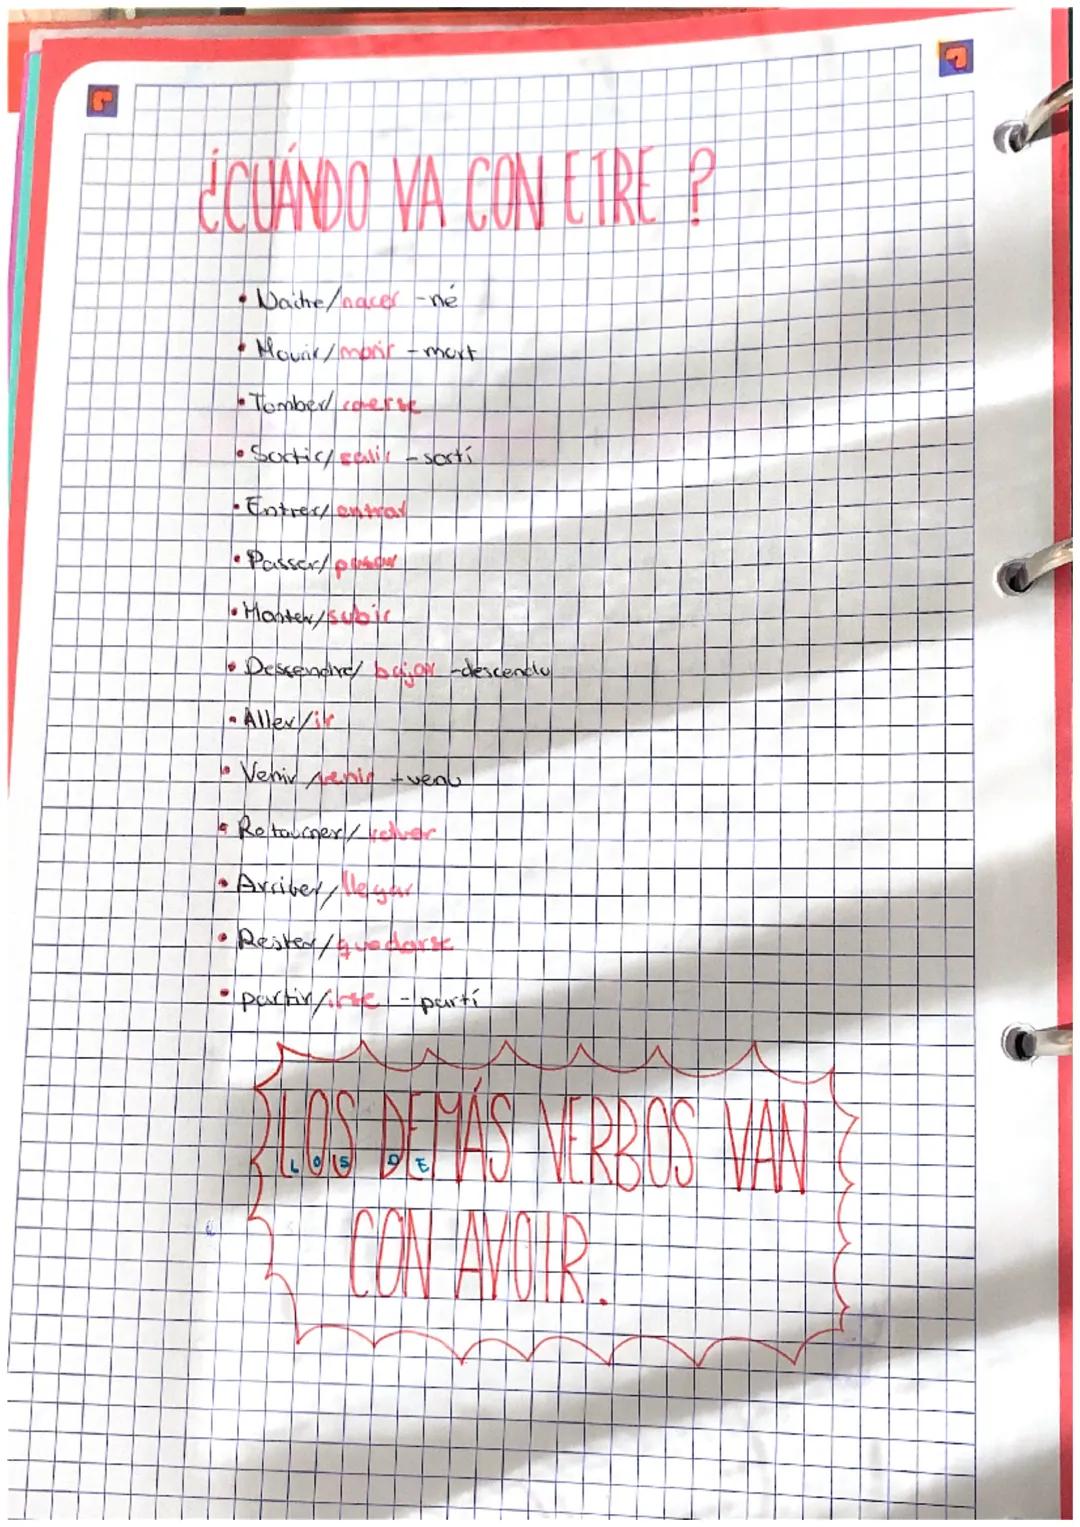 ¿CUÁNDO VA CON ETRE ?
• Naitre/nacer - né
• Mourir/morir - mort
• Tomber/caerse
• Sortir/salir - sortí
• Entrer/entrar
• Passer/pasar
• Monter/subir
• Descendre/bajar - descendu
• Aller/ir
• Venir/venir - venu
• Retourner/volver
• Arriber/llegar
• Rester/quedarse
• partir/irse - partí
LOS DEMÁS VERBOS VAN
LOS DE
CON AVOIR.